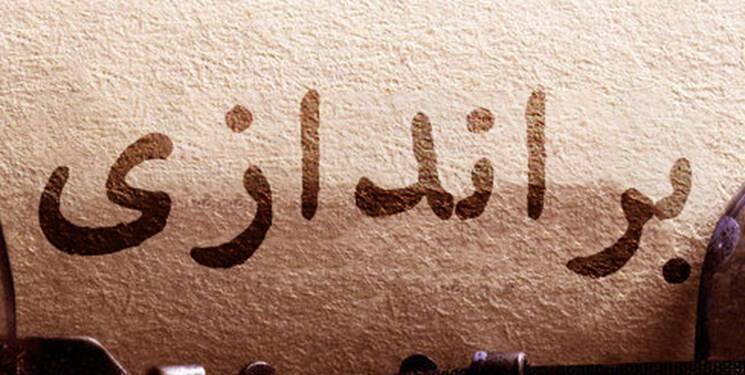 براندازی